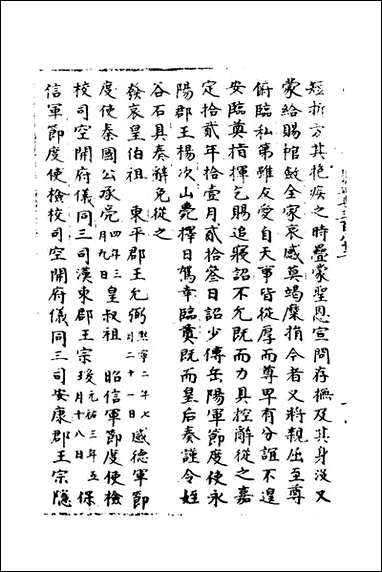 短折方其抱疾之時疊蒙聖恩宣問存撫及其身沒又
蒙給賜棺斂全家哀感莫竭糜捐今者又將親屈至尊
俯臨私第雖友愛自天事皆從厚而尊卑有分誼不遑
安臨奠指揮乞賜追寢詔不允既而力具控辭從之嘉
定拾貳年拾壹月貳拾叄日詔少傅岳陽軍節度使永
陽郡王楊次山薨擇日駕幸臨奠既而皇后奏謹令姪
谷石具奏辭免從之
發哀皇伯祖 東平郡王允弼熙寧二年七月二十一日 感德軍節
度使秦國公承亮四年三月九日 皇叔祖 昭信軍節度使檢
校司空開府儀同三司漢東郡王宗瑗元祐三年五月十八日 保
信軍節度使檢校司空開府儀同三司安康郡王宗隱